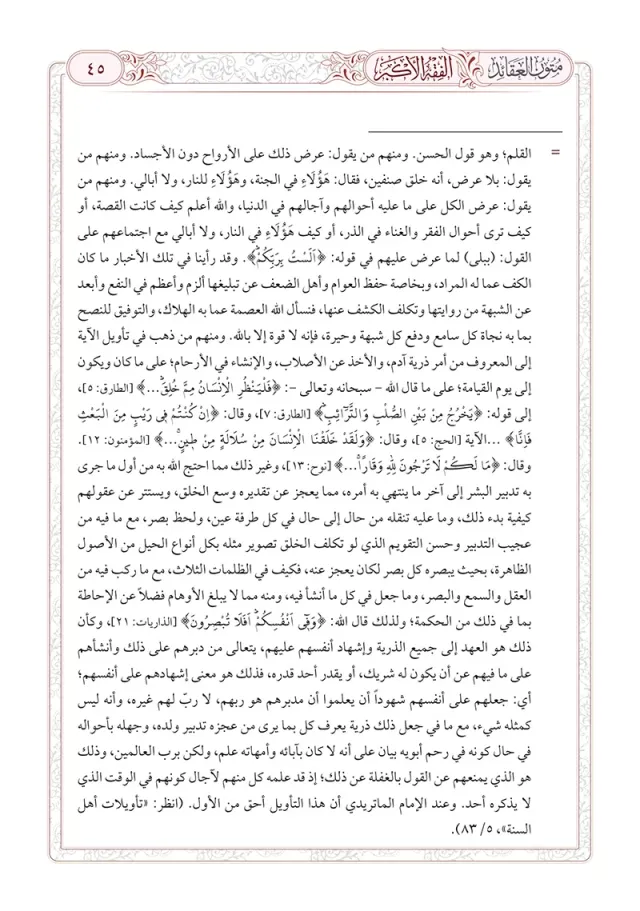 متون العقائد الفقه الأكبر ٤٥
= القلم؛ وهو قول الحسن. ومنهم من يقول: عرض ذلك على الأرواح دون الأجساد. ومنهم من
يقول: بلا عرض، أنه خلق صنفين، فقال: هَؤُلَاءِ في الجنة، وهَؤُلَاءِ للنار، ولا أبالي. ومنهم من
يقول: عرض الكل على ما عليه أحوالهم وآجالهم في الدنيا، والله أعلم كيف كانت القصة، أو
كيف ترى أحوال الفقر والغناء في الذر، أو كيف هَؤُلَاءِ في النار، ولا أبالي مع اجتماعهم على
القول: (ببلى) لما عرض عليهم في قوله: ﴿اَلَسْتُ بِرَبِّكُمْ﴾. وقد رأينا في تلك الأخبار ما كان
الكف عما له المراد، وبخاصة حفظ العوام وأهل الضعف عن تبليغها ألزم وأعظم في النفع وأبعد
عن الشبهة من روايتها وتكلف الكشف عنها، فنسأل الله العصمة عما به الهلاك، والتوفيق للنصح
بما به نجاة كل سامع ودفع كل شبهة وحيرة، فإنه لا قوة إلا بالله. ومنهم من ذهب في تأويل الآية
إلى المعروف من أمر ذرية آدم، والأخذ عن الأصلاب، والإنشاء في الأرحام؛ على ما كان ويكون
إلى يوم القيامة؛ على ما قال الله - سبحانه وتعالى -: ﴿فَلْيَنْظُرِ الْاِنْسَانُ مِمَّ خُلِقَ...﴾ [الطارق: ٥]،
إلى قوله: ﴿يَخْرُجُ مِنْ بَيْنِ الصُّلْبِ وَالتَّرَآئِبِ﴾ [الطارق: ٧]، وقال: ﴿اِنْ كُنْتُمْ فِى رَيْبٍ مِنَ الْبَعْثِ
فَاِنَّا﴾ ...الآية [الحج: ٥]، وقال: ﴿وَلَقَدْ خَلَقْنَا الْاِنْسَانَ مِنْ سُلَالَةٍ مِنْ طٖينٍ...﴾ [المؤمنون: ١٢].
وقال: ﴿مَا لَكُمْ لَا تَرْجُونَ لِلّٰهِ وَقَارًا...﴾ [نوح: ١٣]، وغير ذلك مما احتج الله به من أول ما جرى
به تدبير البشر إلى آخر ما ينتهي به أمره، مما يعجز عن تقديره وسع الخلق، ويستتر عن عقولهم
كيفية بدء ذلك، وما عليه تنقله من حال إلى حال في كل طرفة عين، ولحظ بصر، مع ما فيه من
عجيب التدبير وحسن التقويم الذي لو تكلف الخلق تصوير مثله بكل أنواع الحيل من الأصول
الظاهرة، بحيث يبصره كل بصر لكان يعجز عنه، فكيف في الظلمات الثلاث، مع ما ركب فيه من
العقل والسمع والبصر، وما جعل في كل ما أنشأ فيه، ومنه مما لا يبلغ الأوهام فضلاً عن الإحاطة
بما في ذلك من الحكمة؛ ولذلك قال الله: ﴿وَفٖٓى اَنْفُسِكُمْ اَفَلَا تُبْصِرُونَ﴾ [الذاريات: ٢١]، وكأن
ذلك هو العهد إلى جميع الذرية وإشهاد أنفسهم عليهم، يتعالى من دبرهم على ذلك وأنشأهم
على ما فيهم عن أن يكون له شريك، أو يقدر أحد قدره، فذلك هو معنى إشهادهم على أنفسهم؛
أي: جعلهم على أنفسهم شهوداً أن يعلموا أن مدبرهم هو ربهم، لا ربّ لهم غيره، وأنه ليس
كمثله شيء، مع ما في جعل ذلك ذرية يعرف كل بما يرى من عجزه تدبير ولده، وجهله بأحواله
في حال كونه في رحم أبويه بيان على أنه لا كان بآبائه وأمهاته علم، ولكن برب العالمين، وذلك
هو الذي يمنعهم عن القول بالغفلة عن ذلك؛ إذ قد علمه كل منهم لآجال كونهم في الوقت الذي
لا يذكره أحد. وعند الإمام الماتريدي أن هذا التأويل أحق من الأول. (انظر: «تأويلات أهل
السنة»، ٥/ ٨٣).